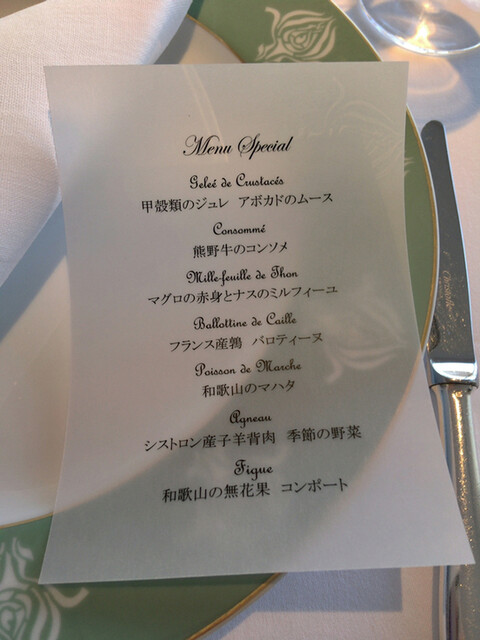 Menu Special
Geleé de Crustacés
甲殻類のジュレ アボカドのムース
Consommé
熊野牛のコンソメ
Mille-feuille de Thon
マグロの赤身とナスのミルフィーユ
Ballottine de Caille
フランス産鶉 バロティーヌ
Poisson de Marche
和歌山のマハタ
Agneau
シストロン産子羊背肉 季節の野菜
Figue
和歌山の無花果 コンポート